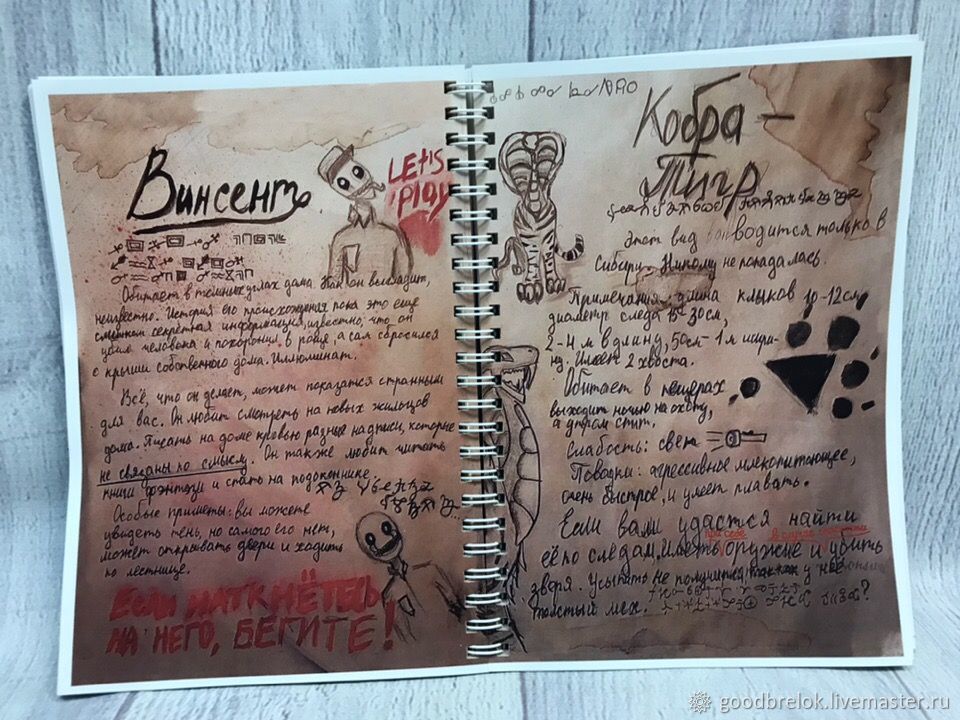 Винсент
LET'S
PLAY
Обитает в тёмных углах дома. Как он выглядит,
неизвестно. История его происхождения пока это ещё
секретная информация, известно, что он
убил человека и похоронил в раще, а сам сбросился
с крыши собственного дома. Иллюминат.
Всё, что он делает, может показатся странным
для вас. Он любит смотреть на новых жильцов
дома. Писать на доме кровью разные надписи, которые
не связаны по смыслу. Он также любит читать
книги фэнтези и спать на подоконнике.
Особые приметы: вы можете
увидеть тень, но самого его нет,
может открывать двери и ходить
по лестнице.
ЕСЛИ НАТКНЁТЕСЬ
НА НЕГО, БЕГИТЕ!
Кобра-
Тигр
Этот вид водится только в
Сибири. Никому не попадалась.
Примечания: длина клыков 10-12см,
диаметр следа 15-30см,
2-4 м в длину, 50см-1м шири-
ну. Имеет 2 хвоста.
Обитает в пещерах
выходит ночью на охоту,
а утром спит.
Слабость: свет
Повадки: агрессивное млекопитающее,
очень быстрое, и умеет плавать.
Если вам удастся найти
при себе в случае
её по следам, иметь оружие и убить
зверя. Усыпить не получится, у неё
толстый мех.
goodbrelok.livemaster.ru